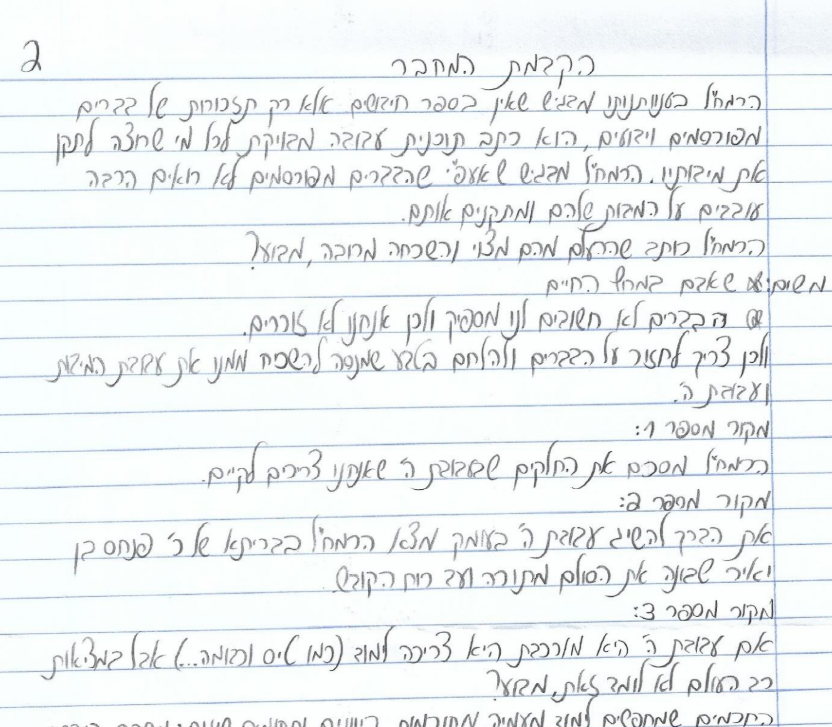 2
הקדמת המחבר
הרמח"ל בענוותנותו מדגיש שאין בספר חידושים אלא רק תזכורות של דברים
מפורסמים וידועים, הוא כתב תוכנית עבודה מדויקת לכל מי שרוצה לתקן
את מידותיו. הרמח"ל מדגיש שאעפ"י שהדברים מפורסמים לא רואים הרבה
עובדים על המדות שלהם ומתקנים אותם.
הרמח"ל כותב שההעלם מהם מצוי והשכחה מרובה, מדוע?
משום: שאדם במרוץ החיים
הדברים לא חשובים לנו מספיק ולכן אנחנו לא זוכרים.
ולכן צריך לחזור על הדברים ולהלחם בטבע שמנסה להשכיח ממנו את עבודת המידות
ועבודת ה'.
מקור מספר 1:
הרמח"ל מסכם את החלקים שבעבודת ה' שאנחנו צריכים לקיים.
מקור מספר 2:
את הדרך להשיג עבודת ה' בעומק מצא הרמח"ל בבריתא של ר' פנחס בן
יאיר שבונה את הסולם מתורה ועד רוח הקודש.
מקור מספר 3:
אם עבודת ה' היא מורכבת היא צריכה לימוד (כמו טיס וכדומה...) אבל במציאות
רב העולם לא לומד זאת, מדוע?
החכמים שמחפשים לימוד מעמיק